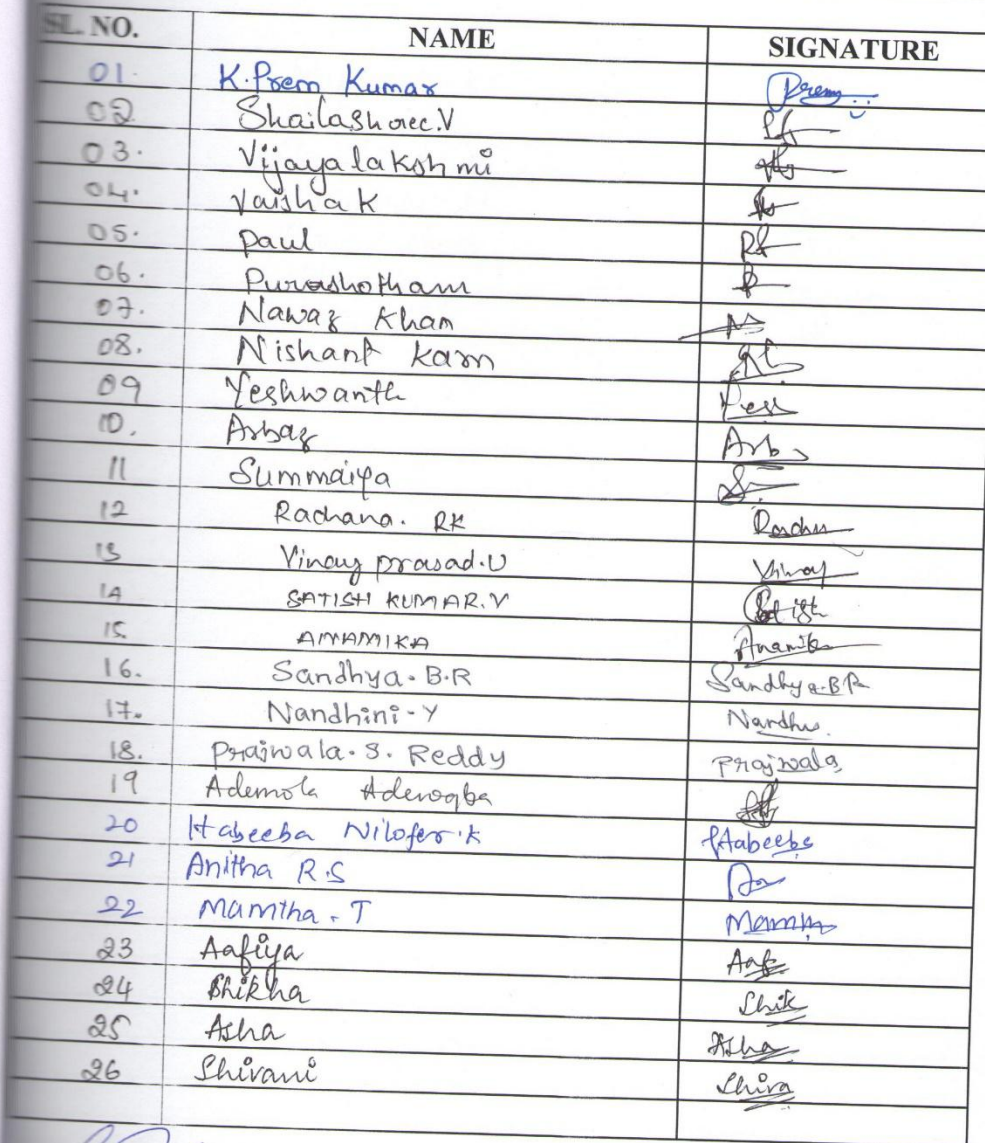 SL. NO. NAME SIGNATURE
01. K. Prem Kumar Prem
02. Shailashree.V
03. Vijayalakshmi
04. Vaisha K
05. Paul
06. Purushotham
07. Nawaz Khan
08. Nishant Karn
09 Yeshwanth Yesh
10. Arbaz Arb
11 Summaiya
12 Rachana. RK Rachu
13 Vinay prasad.U Vinay
14 SATISH KUMAR.V Satish
15. ANAMIKA Anamika
16. Sandhya. B.R Sandhya.BR
17. Nandhini-Y Nandhu
18. Prajwala. S. Reddy Prajwala
19 Ademola Aderogba
20 Habeeba Nilofer.K Habeeba
21 Anitha R.S
22 Mamtha. T Mamtha
23 Aafiya Aaf
24 Shikha Shik
25 Asha Asha
26 Shivani Shiva